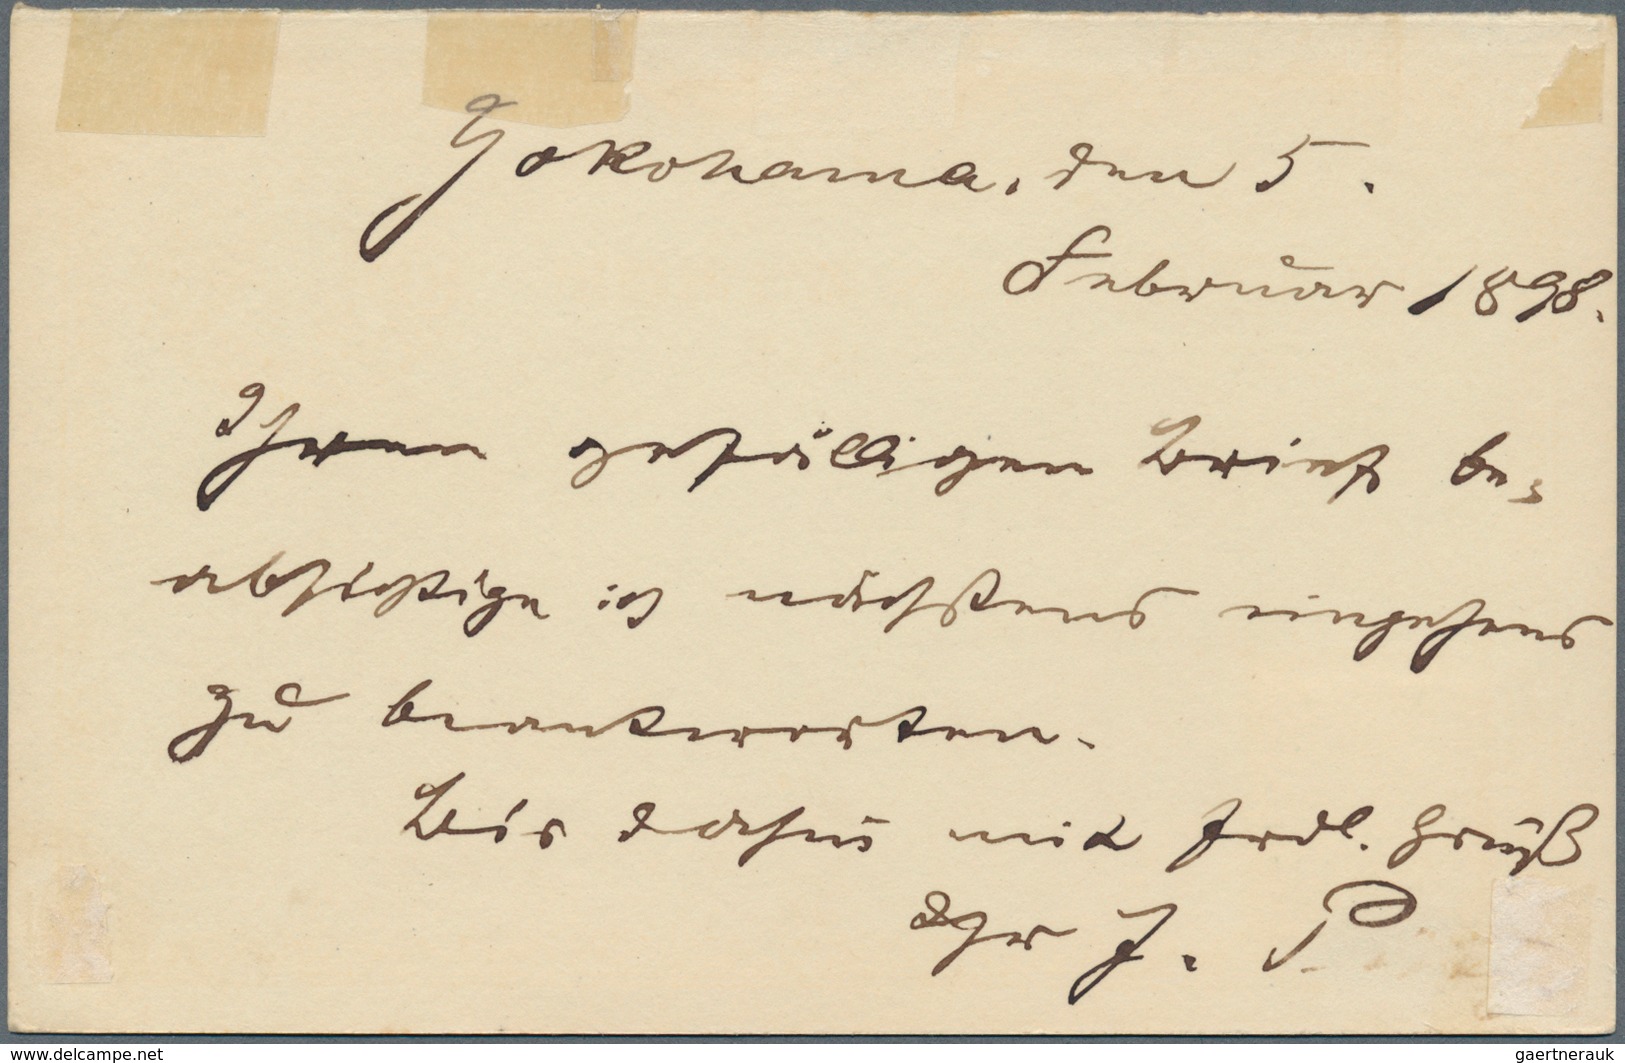 Yokohama, den 5.
Februar 1898.
Ihren gefälligen Brief be-
absichtige ich nächstens eingehend
zu beantworten.
Bis dahin mit frdl. Gruß
Ihr J. P.
www.delcampe.net
gaertnerauk